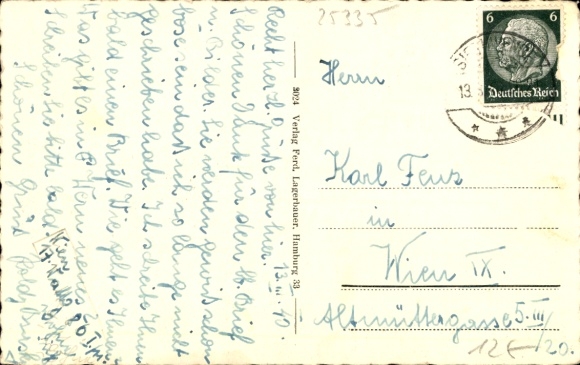 25335
6 6
Deutsches Reich
13.
Herrn
Karl Fenz
in
Wien IX.
Altmüttergasse 5. III/20.
12€
3024 Verlag Ferd. Lagerbauer, Hamburg 33
Recht herzl. Grüße von hier. 13. III. 40.
Schönen Dank für den lb. Brief
u. Bilder. Sie werden gewiß schon
böse sein daß ich so lange nicht
geschrieben habe. Ich schreibe Ihnen
bald einen Brief. Wie geht es Ihnen
Was gibt es in Wien neues
Schreiben Sie bitte bald
Schönen Gruß
Wien
17.